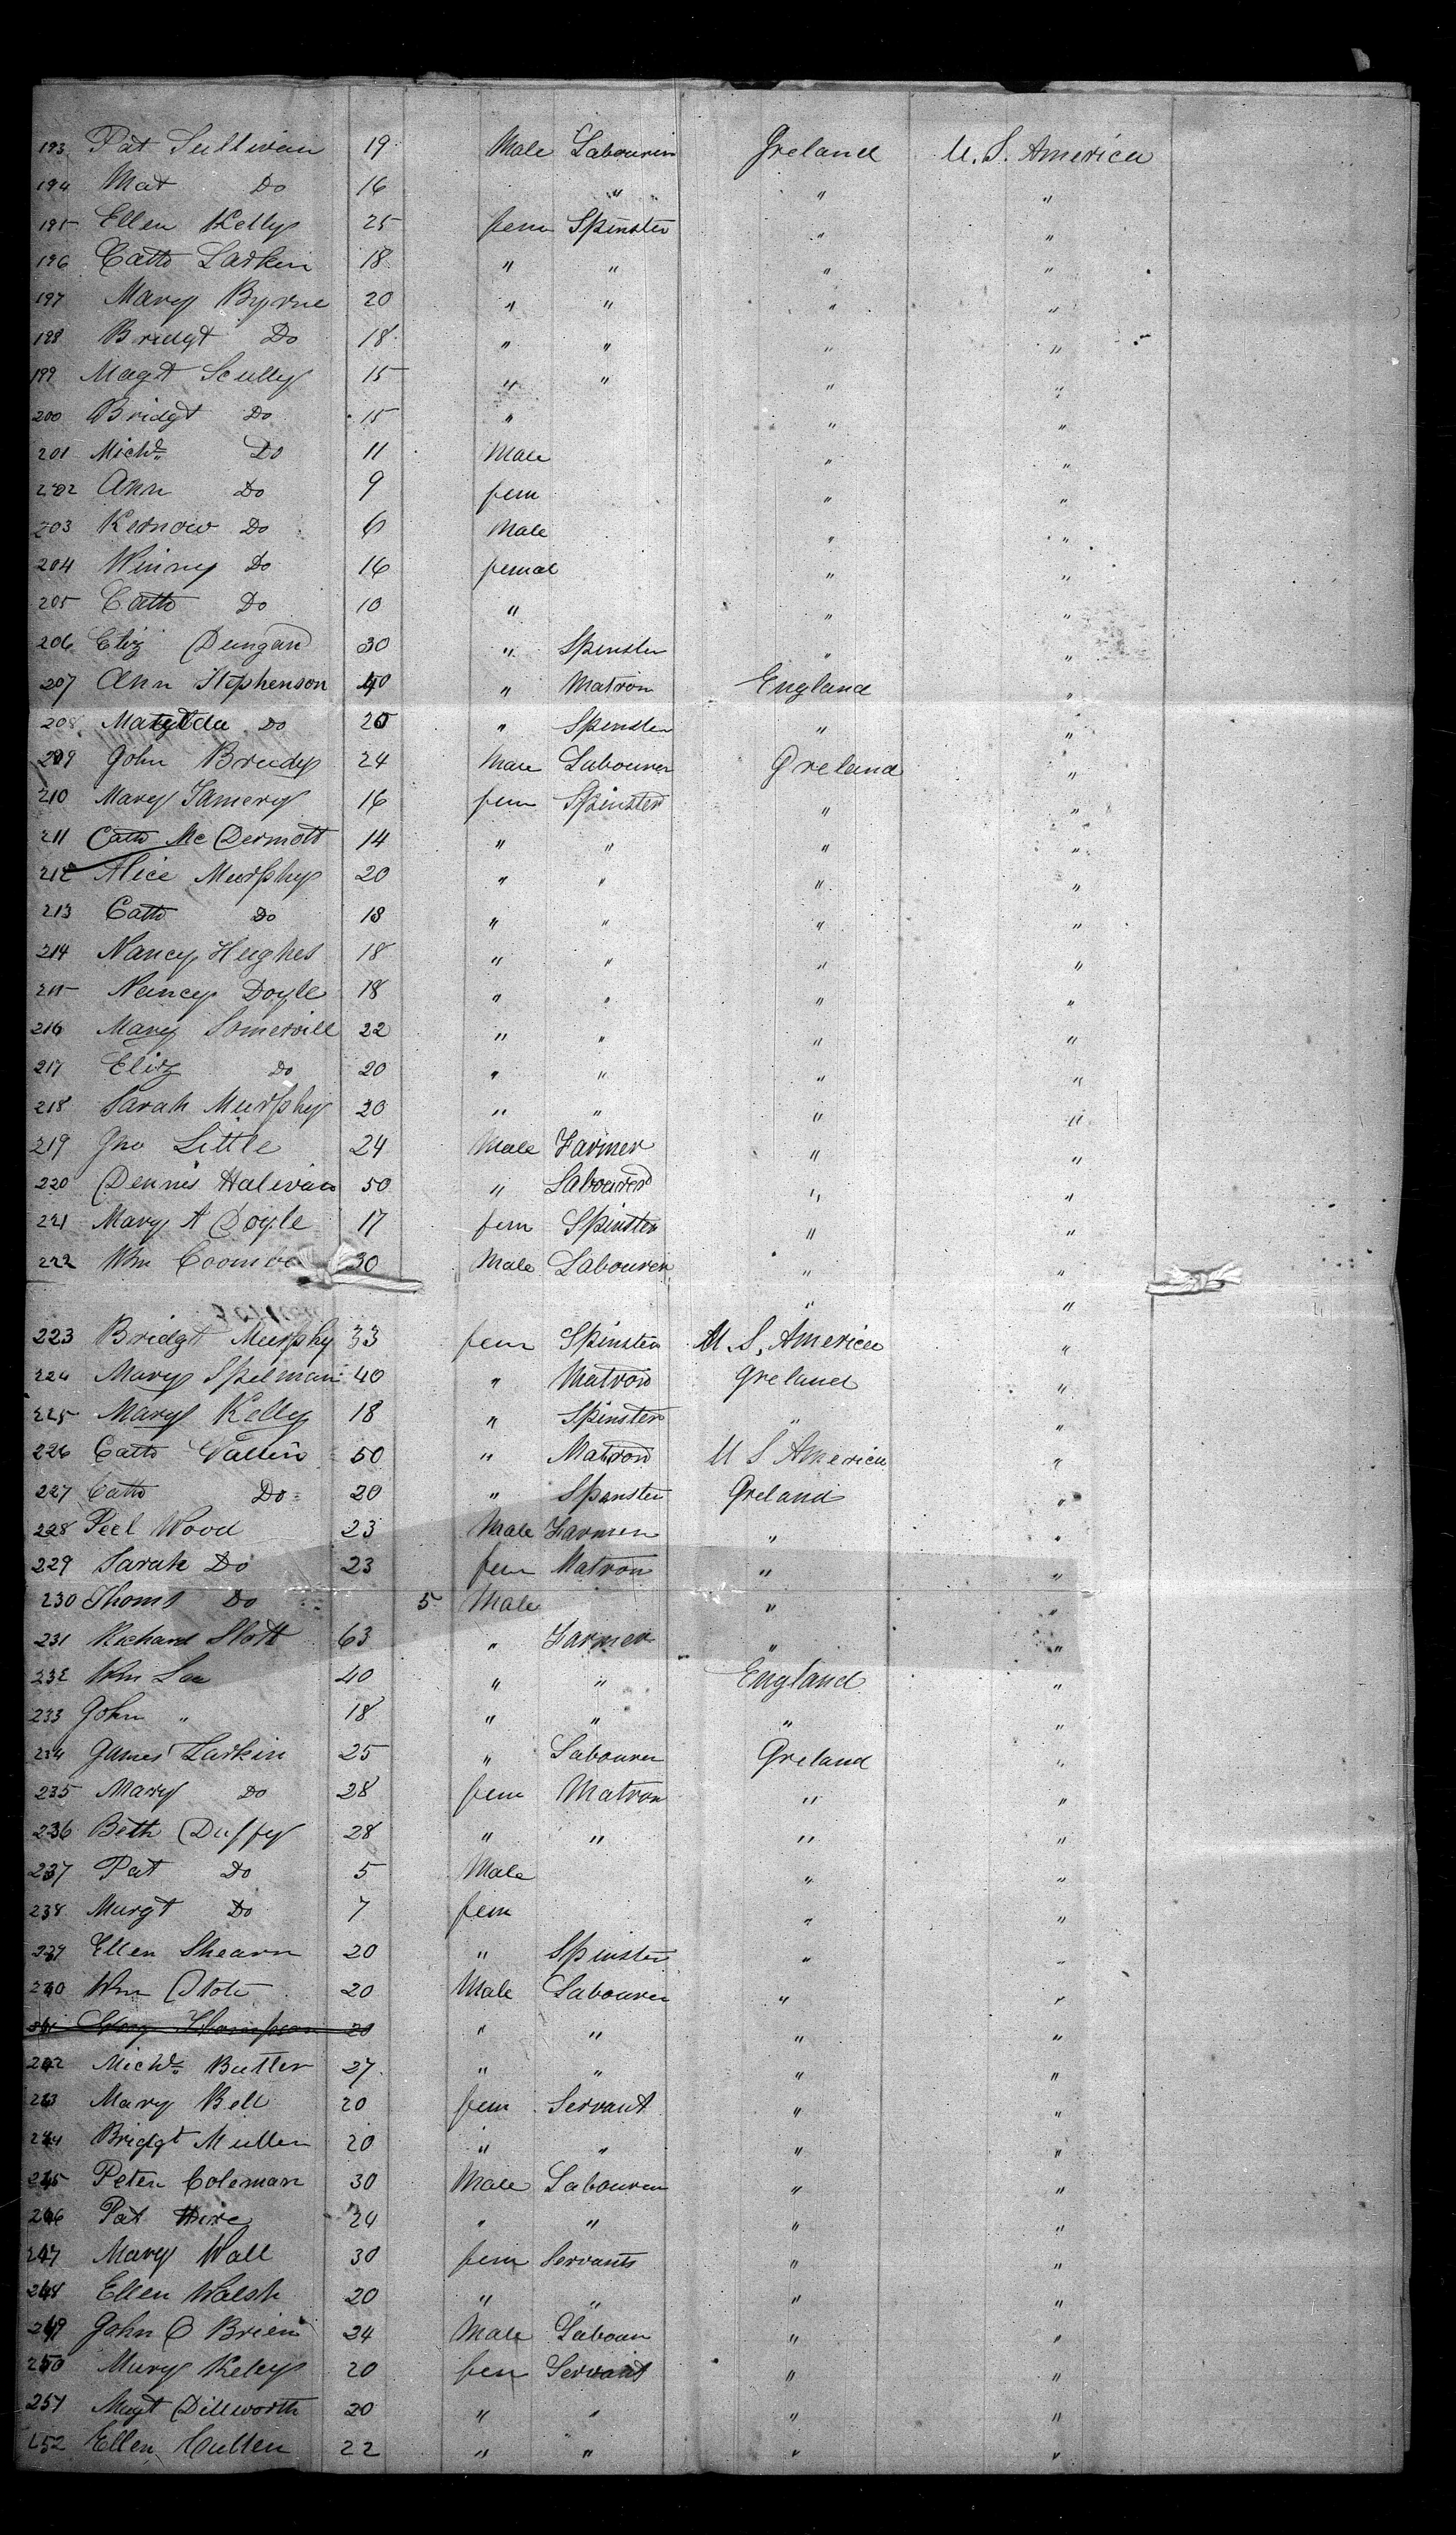 193 Pat Sullivan 19 Male Labourer Ireland U. S. America
194 Mat Do 16 " " "
195 Ellen Kelly 25 fem Spinster " "
196 Cath Larkin 18 " " " "
197 Mary Byrne 20 " " " "
198 Bridgt Do 18 " " " "
199 Magt Scully 15 " " " "
200 Bridgt Do 15 " " "
201 Michl Do 11 Male " "
202 Ann Do 9 fem " "
203 Kernow Do 6 Male " "
204 Winny Do 16 femal " "
205 Cath Do 10 " " "
206 Eliz Dungan 30 " Spinster " "
207 Ann Stephenson 40 " Matron England "
208 Matylda Do 20 " Spinster " "
209 John Brudy 24 Male Labourer Ireland "
210 Mary 16 fem Spinster " "
211 Cath Mc Dermott 14 " " " "
212 Alice Murphy 20 " " " "
213 Cath Do 18 " " " "
214 Nancy Hughes 18 " " " "
215 Nancy Doyle 18 " " " "
216 Mary Somervill 22 " " " "
217 Eliz Do 20 " " " "
218 Sarah Murphy 20 " " " "
219 Jno Little 24 Male Farmer " "
220 Dennis Halivan 50 " Labourer " "
221 Mary A Doyle 17 fem Spinster " "
222 Wm 30 Male Labourer " "
" "
223 Bridgt Murphy 33 fem Spinster U. S. America "
224 Mary Spelman 40 " Matron Ireland "
225 Mary Kelly 18 " Spinster " "
226 Cath 50 " Matron U S America "
227 Cath Do 20 " Spinster Ireland "
228 Peel Wood 23 Male Farmer " "
229 Sarah Do 23 fem Matron " "
230 Thoms Do 5 Male " "
231 Richard Slott 63 " Farmer " "
232 Wm Lee 40 " " England "
233 John " 18 " " " "
234 James Larkin 25 " Labourer Ireland "
235 Mary Do 28 fem Matron " "
236 Beth Duffy 28 " " " "
237 Pat Do 5 Male " "
238 Margt Do 7 fem " "
239 Ellen Shearn 20 " Spinster " "
240 Wm 20 Male Labourer " "
241 Thompson 20 " " " "
242 Michl Butler 27 " " " "
243 Mary Bell 20 fem Servant " "
244 Bridgt Mullen 20 " " " "
245 Peter Coleman 30 Male Labourer " "
246 Pat 24 " " " "
247 Mary Wall 30 fem Servants " "
248 Ellen Walsh 20 " " " "
249 John O Brien 24 Male Labour " "
250 Mary Keley 20 fem Servant " "
251 Magt Dillworth 20 " " " "
252 Ellen Cullen 22 " " " "